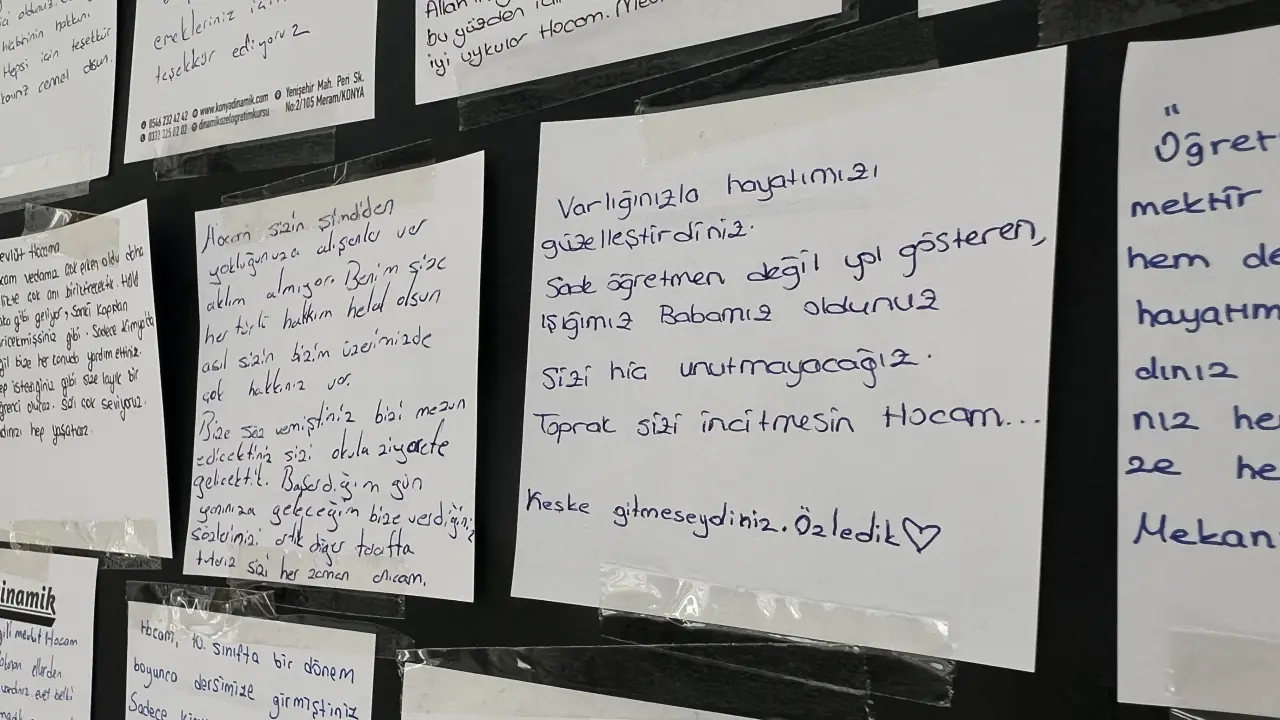 emekleriniz için
teşekkür ediyoruz
0546 232 42 42 www.konyadinamik.com
0332 325 02 02 dinamikozelogretimkursu
Yenişehir Mah. Peri Sk.
No:2/105 Meram/KONYA
Allah
bu yüzden
iyi uykular Hocam.
habrinin hakkın.
Hepsi için teşekkür
cennet olsun.
Hocama
cam vedamız çok erken oldu daha
likte çok anı biriktirecektik. Hala
aka gibi geliyor, Sanki kapıdan
gibi. Sadece kimyada
ğil bize her konuda yardım ettiniz.
ep istediğiniz gibi size layık bir
Sizi çok seviyoruz.
hep yaşatırız.
Hocam sizin şimdiden
yokluğunuza alışanlar var
aklım almıyor. Benim size
her türlü hakkım helal olsun
asıl sizin bizim üzerimizde
çok hakkınız var.
Bize söz vermiştiniz bizi mezun
edicektiniz sizi okula ziyarete
gelicektik. Başardığım gün
yanınıza geleceğim bize verdiğiniz
sözlerinizi artık diğer tarafta
tutarız sizi her zaman
Varlığınızla hayatımızı
güzelleştirdiniz.
Sade öğretmen değil yol gösteren,
Işığımız Babamız oldunuz
Sizi hiç unutmayacağız.
Toprak sizi incitmesin Hocam...
Keske gitmeseydiniz. Özledik♡
"
Öğret
mektir
hem de
hayatım
dınız
nız he
ze he
Mekan
inamik
gili mevlüt Hocam
ellerden
evet belki
Hocam, 10. sınıfta bir dönem
boyunca dersimize girmiştiniz
Sadece